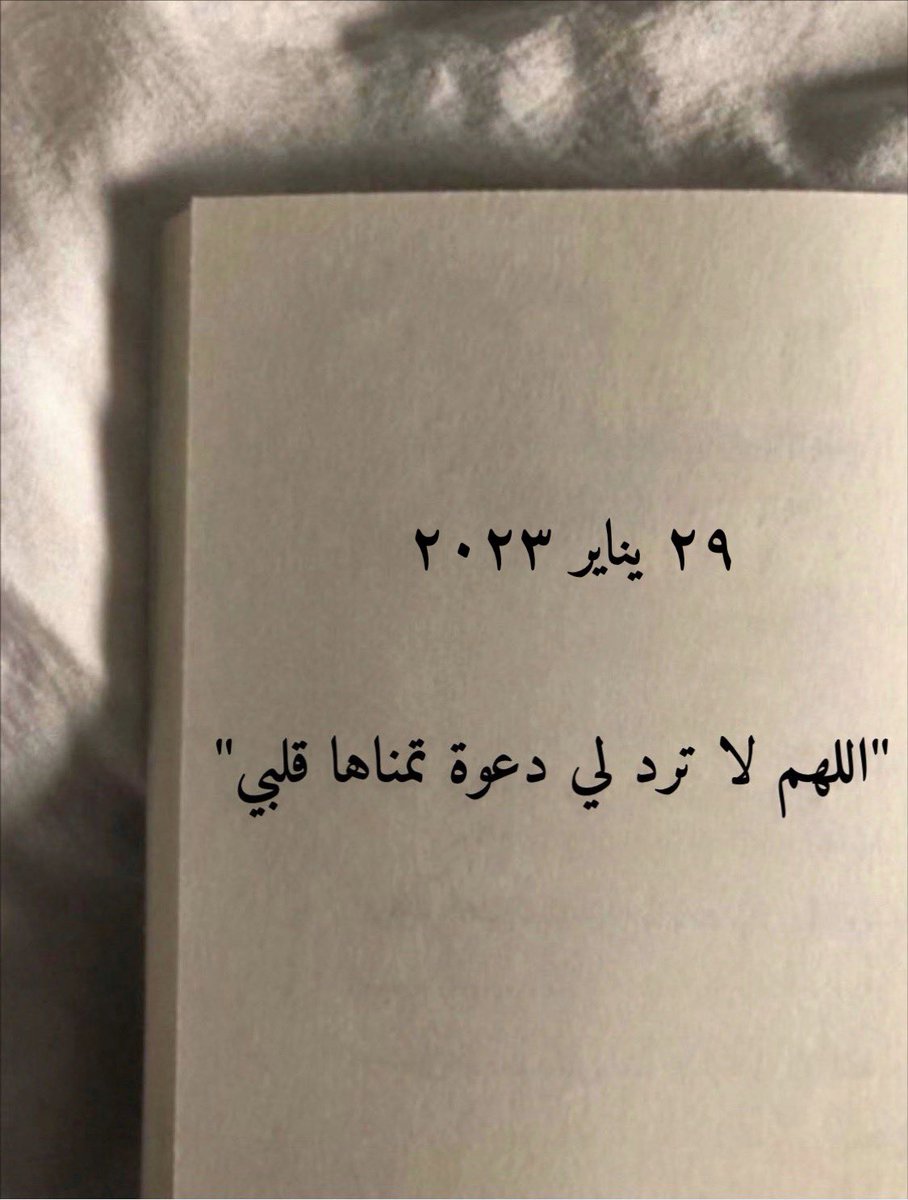 ٢٩ يناير ٢٠٢٣
"اللهم لا ترد لي دعوة تمناها قلبي"